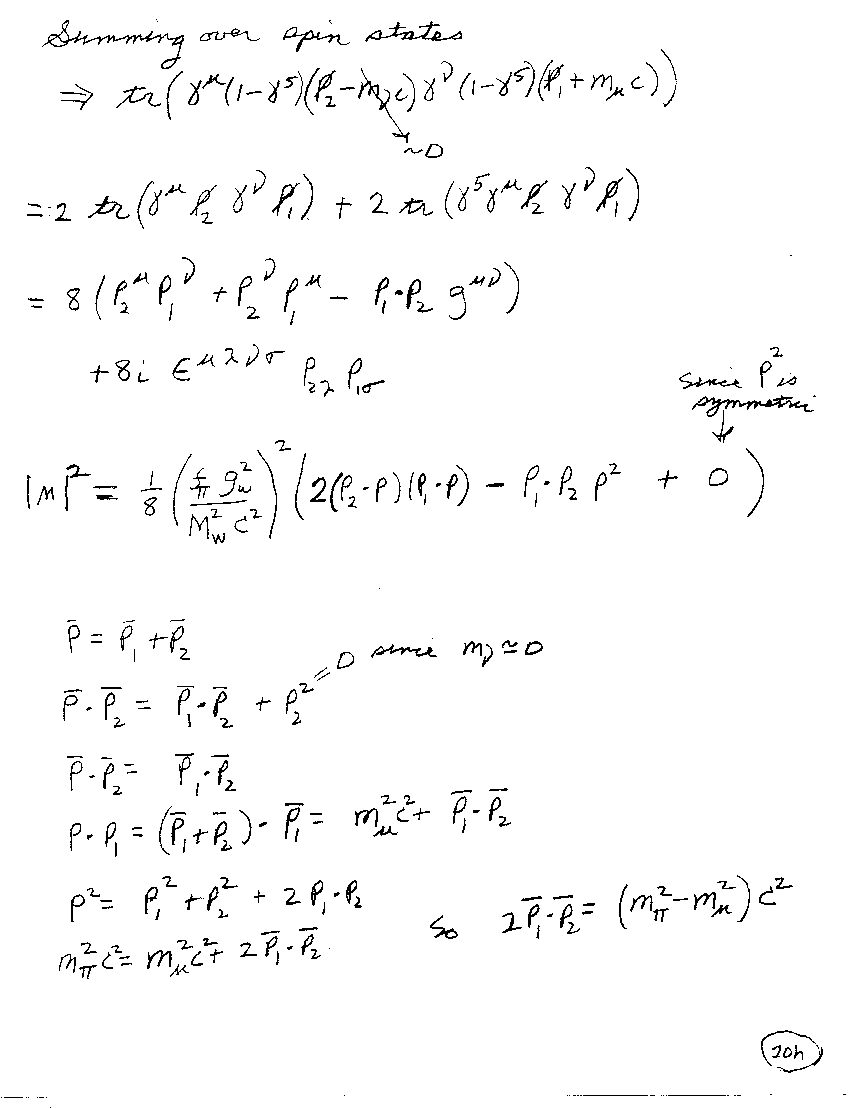 Summing over spin states
⇒ tr(γ^μ(1-γ^5)(p̸_2-m_νc)γ^ν(1-γ^5)(p̸_1+m_μc))
~0
= 2 tr(γ^μ p̸_2 γ^ν p̸_1) + 2 tr(γ^5γ^μ p̸_2 γ^ν p̸_1)
= 8(p_2^μ p_1^ν + p_2^ν p_1^μ - p_1·p_2 g^{μν})
+8i ε^{μλνσ} p_{2λ} p_{1σ}
since p^2 is
symmetric
|M|^2 = 1/8 (f_π g_w^2 / M_w^2 c^2)^2 (2(p_2·p)(p_1·p) - p_1·p_2 p^2 + 0)
p̄ = p̄_1 + p̄_2
p̄·p̄_2 = p̄_1·p̄_2 + p_2^2 = 0 since m_ν ≃ 0
p̄·p̄_2 = p̄_1·p̄_2
p·p_1 = (p̄_1+p̄_2)·p̄_1 = m_μ^2c^2 + p̄_1·p̄_2
p^2 = p_1^2 + p_2^2 + 2p_1·p_2
m_π^2c^2 = m_μ^2c^2 + 2p̄_1·p̄_2
So 2p̄_1·p̄_2 = (m_π^2-m_μ^2)c^2
10h